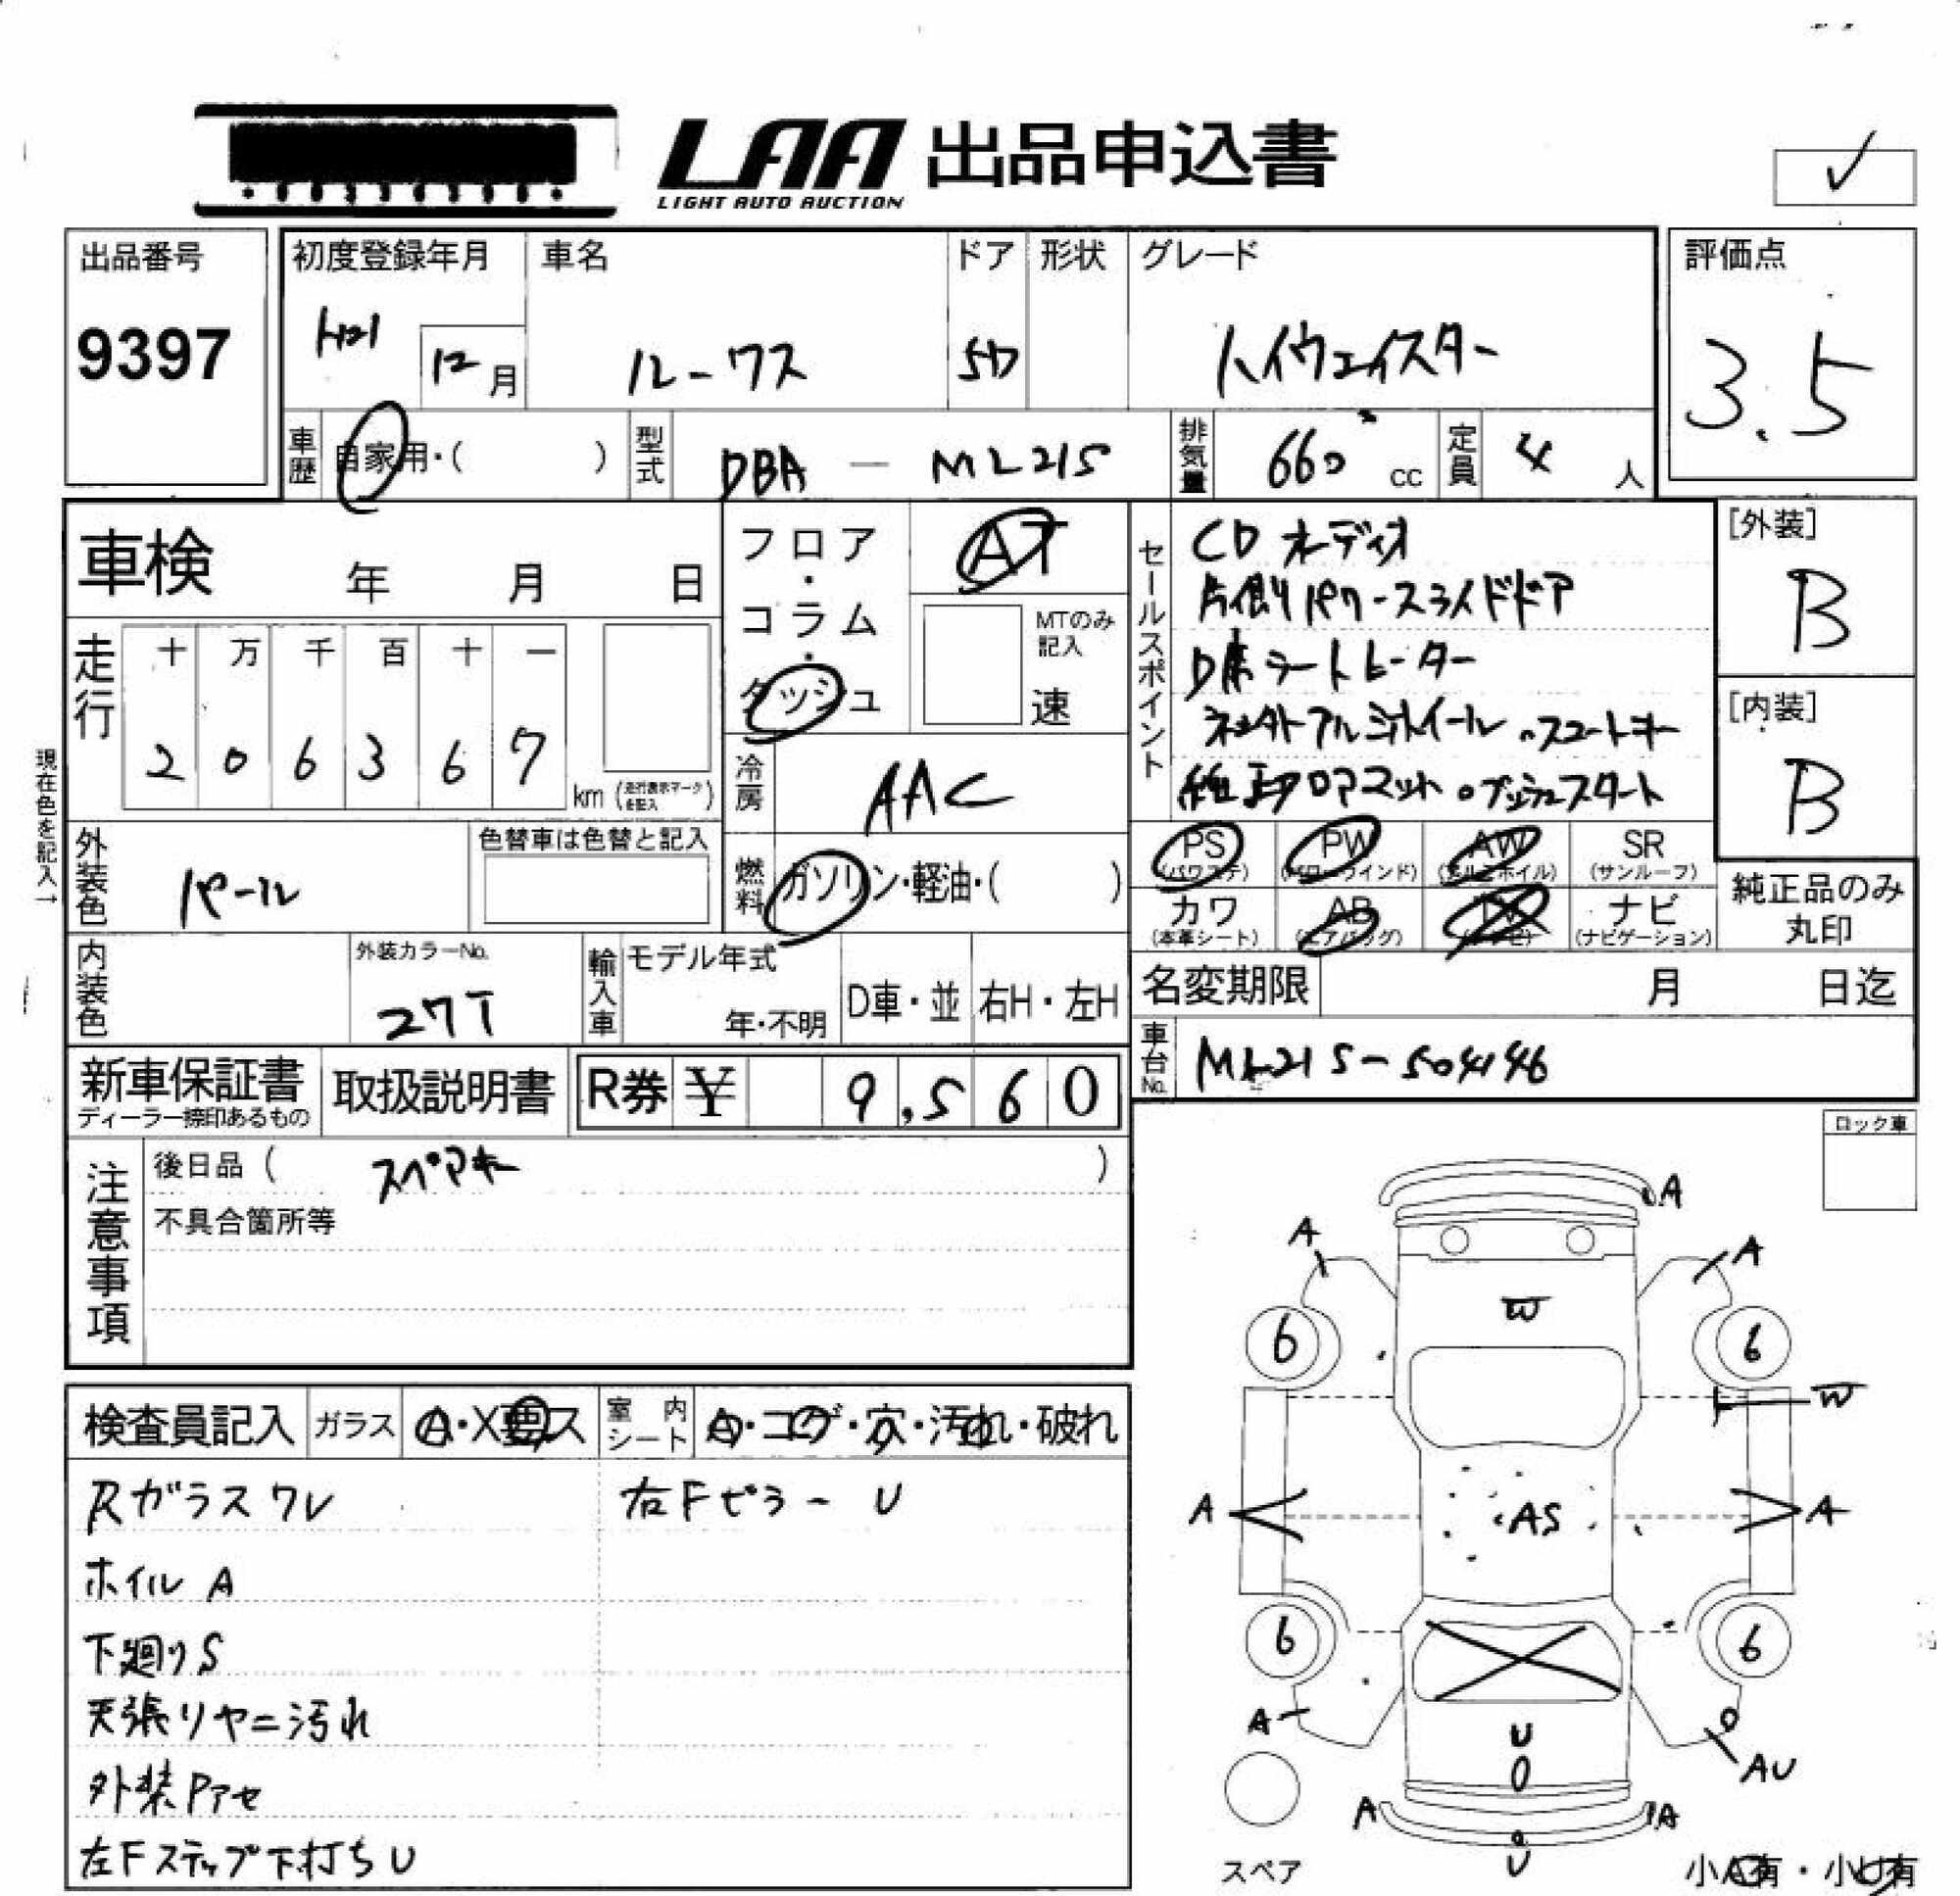 LAA 出品申込書
LIGHT AUTO AUCTION
✓
出品番号
9397
初度登録年月
H21
12月
車名
ルークス
ドア
5D
形状
グレード
ハイウェイスター
評価点
3.5
車歴
自家用・( )
型式
DBA — ML21S
排気量
660 cc
定員
4 人
車検 年 月 日
走行
十 万 千 百 十 一
2 0 6 3 6 7
km (走行表示マークを記入)
現在色を記入→
フロア・コラム・ダッシュ
AT
MTのみ記入
速
冷房
AAC
燃料
ガソリン・軽油・( )
セールスポイント
CDオーディオ
片側パワースライドドア
D席シートヒーター
社外アルミホイール 。スマートキー
純正フロアマット 。プッシュスタート
[外装]
B
[内装]
B
外装色
パール
色替車は色替と記入
PS (パワステ)
PW (パワーウインド)
AW (アルミホイル)
SR (サンルーフ)
カワ (本革シート)
AB (エアバッグ)
TV (テレビ)
ナビ (ナビゲーション)
純正品のみ丸印
内装色
外装カラーNo.
27T
輸入車
モデル年式
年・不明
D車・並
右H・左H
名変期限 月 日迄
車台No.
ML21S-504146
新車保証書
ディーラー捺印あるもの
取扱説明書
R券 ¥ 9,560
注意事項
後日品 ( スペアキー )
不具合箇所等
ロック車
検査員記入
ガラス
A・X要ス
室内シート
A・コゲ・穴・汚れ・破れ
Rガラスワレ
右Fピラー U
ホイル A
下廻りS
天張りヤニ汚れ
外装Pアセ
左Fステップ下打ちU
A
A
A
W
6
6
W
A
AS
A
6
6
A
U
AU
A
A
U
スペア
小A有・小U有